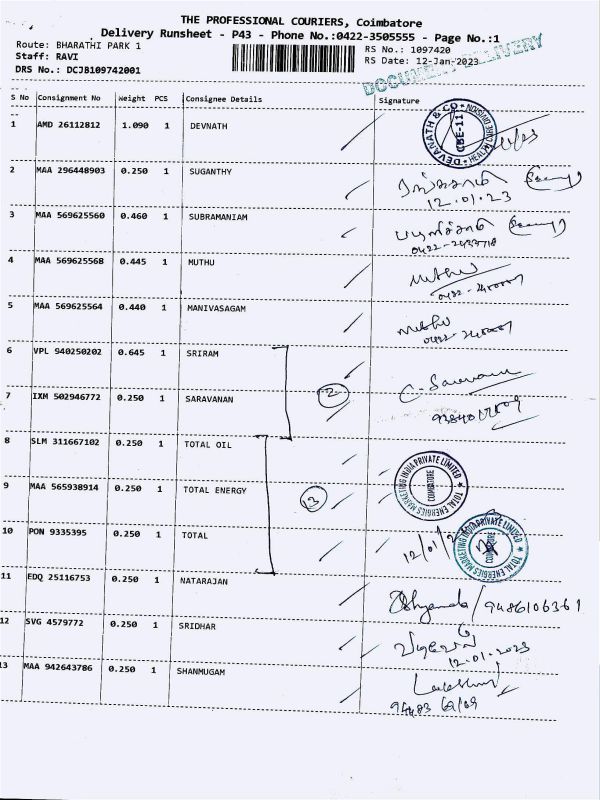 THE PROFESSIONAL COURIERS, Coimbatore
Delivery Runsheet - P43 - Phone No.:0422-3505555 - Page No.:1
Route: BHARATHI PARK 1
RS No.: 1097420
Staff: RAVI
RS Date: 12-Jan-2023
DRS No.: DCJB109742001
DOCUMENT DELIVERY
S No Consignment No Weight PCS Consignee Details Signature
1 AMD 26112812 1.090 1 DEVNATH
DEVANATH & CO
CBE-11
2 MAA 296448903 0.250 1 SUGANTHY
12.01.23
3 MAA 569625560 0.460 1 SUBRAMANIAM
4 MAA 569625568 0.445 1 MUTHU
Muthu
5 MAA 569625564 0.440 1 MANIVASAGAM
Muthu
6 VPL 940250202 0.645 1 SRIRAM
2
C. Saravanan
7 IXM 502946772 0.250 1 SARAVANAN
8 SLM 311667102 0.250 1 TOTAL OIL
TOTAL ENERGIES MARKETING INDIA PRIVATE LIMITED
COIMBATORE
9 MAA 565938914 0.250 1 TOTAL ENERGY
3
10 PON 9335395 0.250 1 TOTAL
12/01/
TOTAL ENERGIES MARKETING INDIA PRIVATE LIMITED
COIMBATORE
11 EDQ 25116753 0.250 1 NATARAJAN
9486106361
12 SVG 4579772 0.250 1 SRIDHAR
12.01.2023
13 MAA 942643786 0.250 1 SHANMUGAM